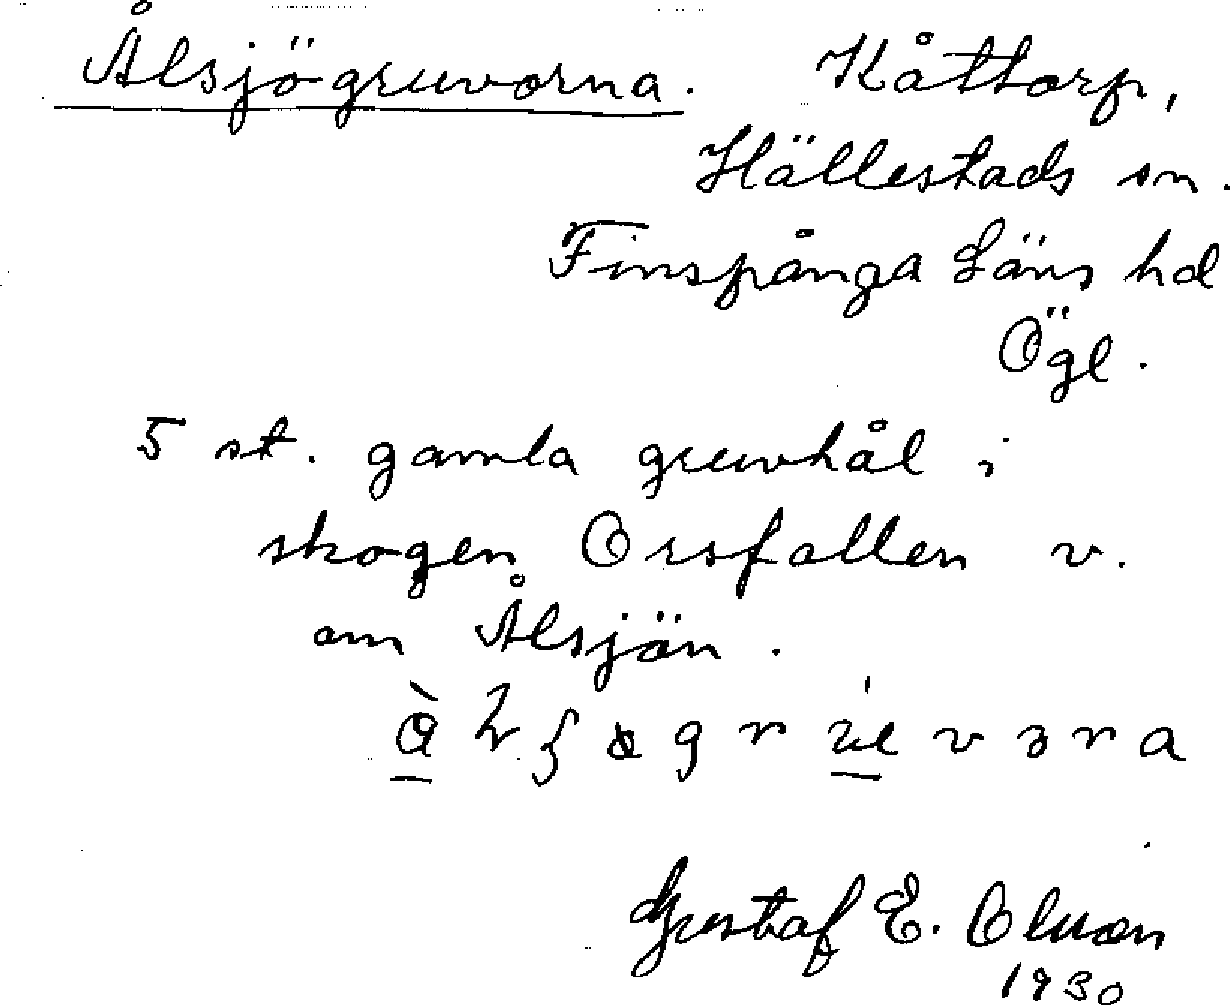 Ålsjögruvorna. Kåttorp,
Hällestads sn.
Finspånga Läns hd
Ögl.
5 st. gamla gruvhål i
skogen Orsfallen v.
om Ålsjön.
Gustaf E. Olsson
1930